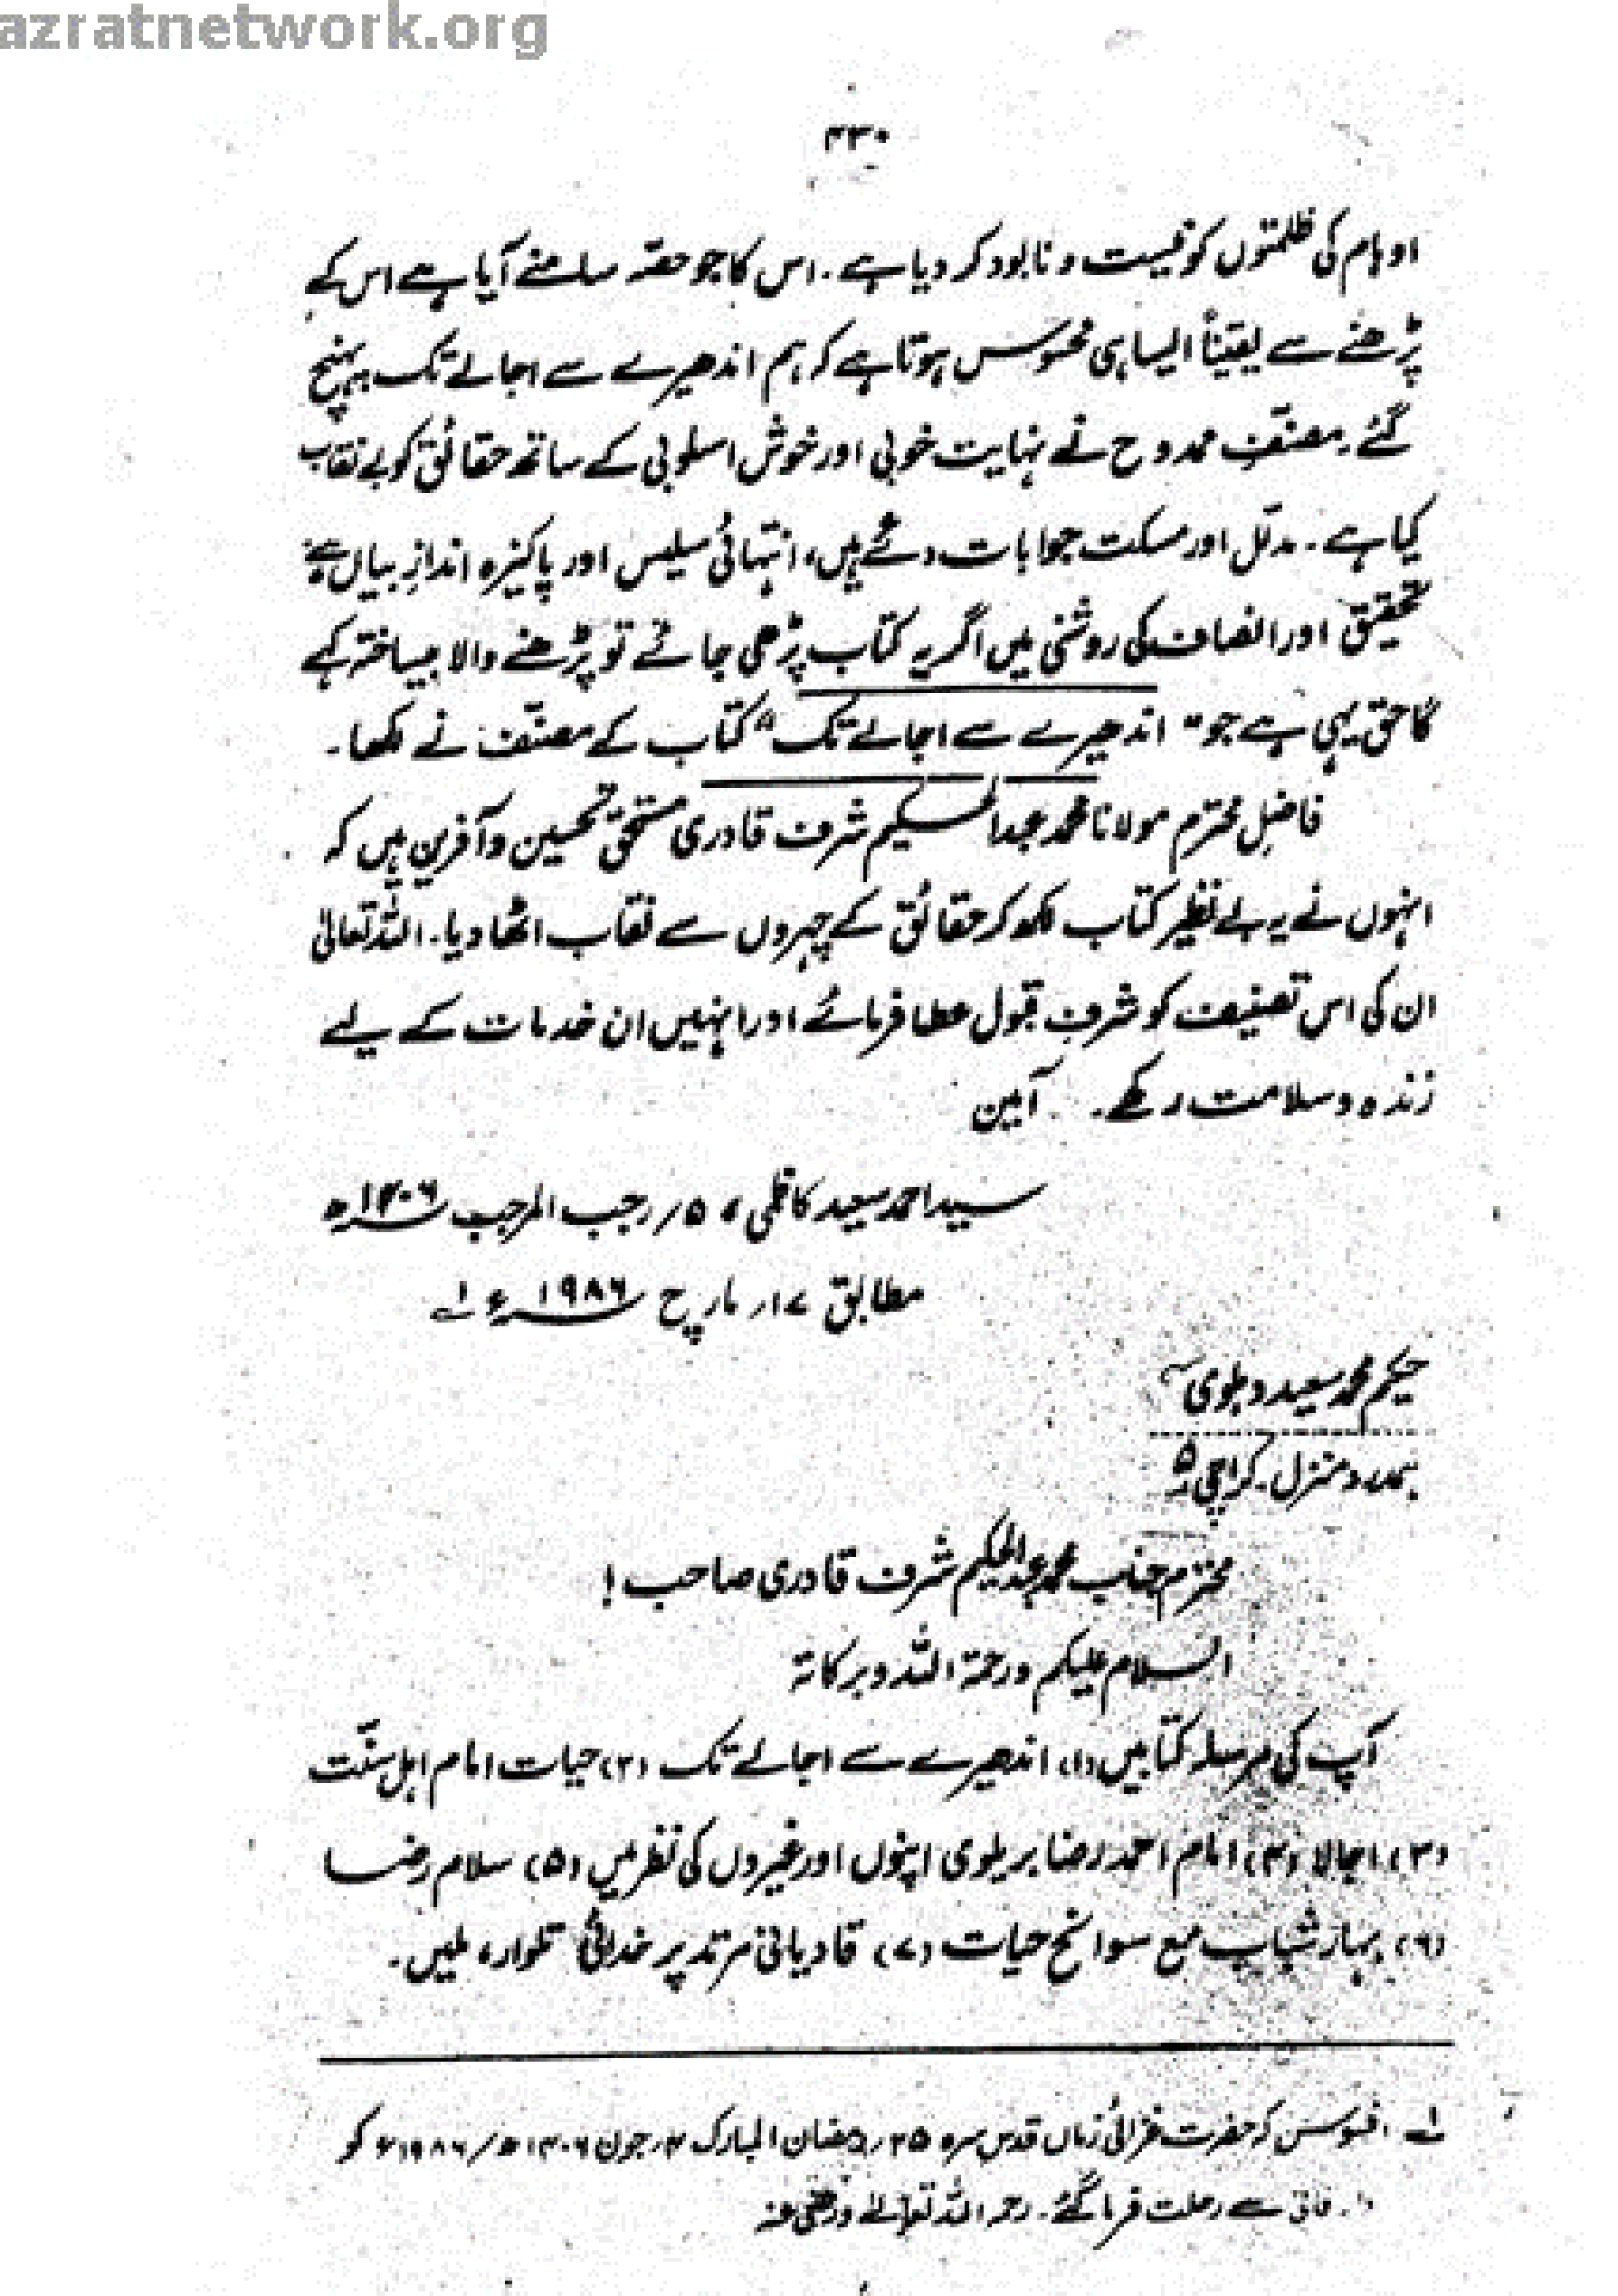 azratnetwork.org
۴۳۰
اوہام کی ظلمتوں کو نیست و نابود کر دیا ہے۔ اس کا جو حصّہ سامنے آیا ہے اس کے
پڑھنے سے یقیناً ایسا ہی محسوس ہوتا ہے کہ ہم اندھیرے سے اجالے تک پہنچ
گئے۔ مصنّف ممدوح نے نہایت خوبی اور خوش اسلوبی کے ساتھ حقائق کو بے نقاب
کیا ہے۔ مدلّل اور مسکت جوابات دئے ہیں، انتہائی سلیس اور پاکیزہ اندازِ بیاں ہے
تحقیق اور انصاف کی روشنی میں اگر یہ کتاب پڑھی جائے تو پڑھنے والا بیساختہ کہے
گا حق یہی ہے جو "اندھیرے سے اجالے تک" کتاب کے مصنّف نے لکھا۔
فاضل محترم مولانا محمد عبدالحکیم شرف قادری مستحق تحسین و آفرین ہیں کہ
انہوں نے یہ بے نظیر کتاب لکھ کر حقائق کے چہروں سے نقاب اٹھا دیا۔ اللہ تعالیٰ
ان کی اس تصنیف کو شرفِ قبول عطا فرمائے اور انہیں ان خدمات کے لیے
زندہ و سلامت رکھے۔ آمین
سید احمد سعید کاظمی، ۵/ رجب المرجب ۱۴۰۶ھ
مطابق ۱۷/ مارچ ۱۹۸۶ء ۱؎
حکیم محمد سعید دہلوی
ہمدرد منزل۔ کراچی ۵
محترم جناب محمد عبدالحکیم شرف قادری صاحب!
السلام علیکم ورحمۃ اللہ وبرکاتہ
آپ کی مرسلہ کتابیں (۱) اندھیرے سے اجالے تک (۲) حیات امام اہل سنّت
(۳) اجالا (۴) امام احمد رضا بریلوی اپنوں اور غیروں کی نظر میں (۵) سلام رضا
(۶) بہار شباب مع سوانح حیات (۷) قادیانی مرتد پر خدائی تلوار، ملیں۔
۱؎ افسوس کہ حضرت غزالئ زماں قدس سرہ ۲۵/ رمضان المبارک ۴/ جون ۱۴۰۶ھ/ ۱۹۸۶ء کو
فانی سے رحلت فرما گئے۔ رحمہ اللہ تعالےٰ ورضی عنہ